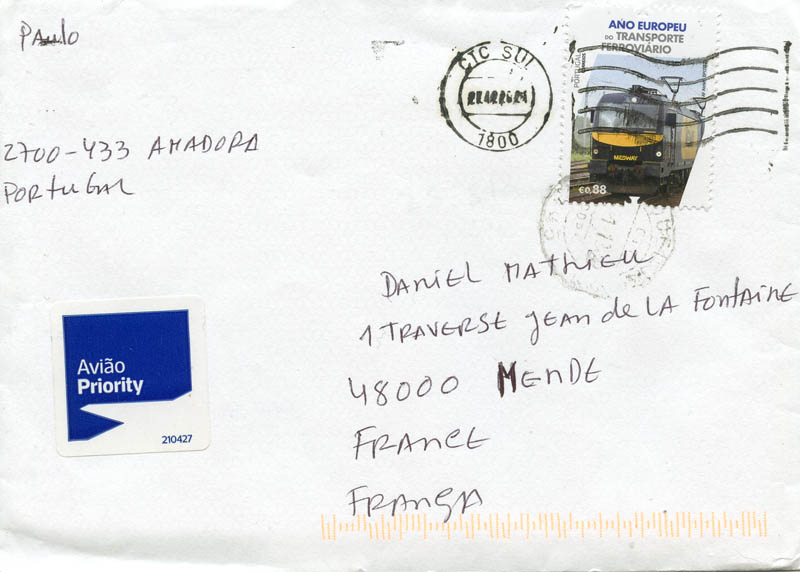 Paulo
2700-433 AMADORA
PORTUGAL
CTC SUL
1800
ANO EUROPEU
DO TRANSPORTE
FERROVIÁRIO
PORTUGAL
MEDWAY
€0,88
DANIEL MATHIEU
1 TRAVERSE JEAN de LA FONTAINE
48000 MENDE
FRANCE
FRANÇA
Avião
Priority
210427